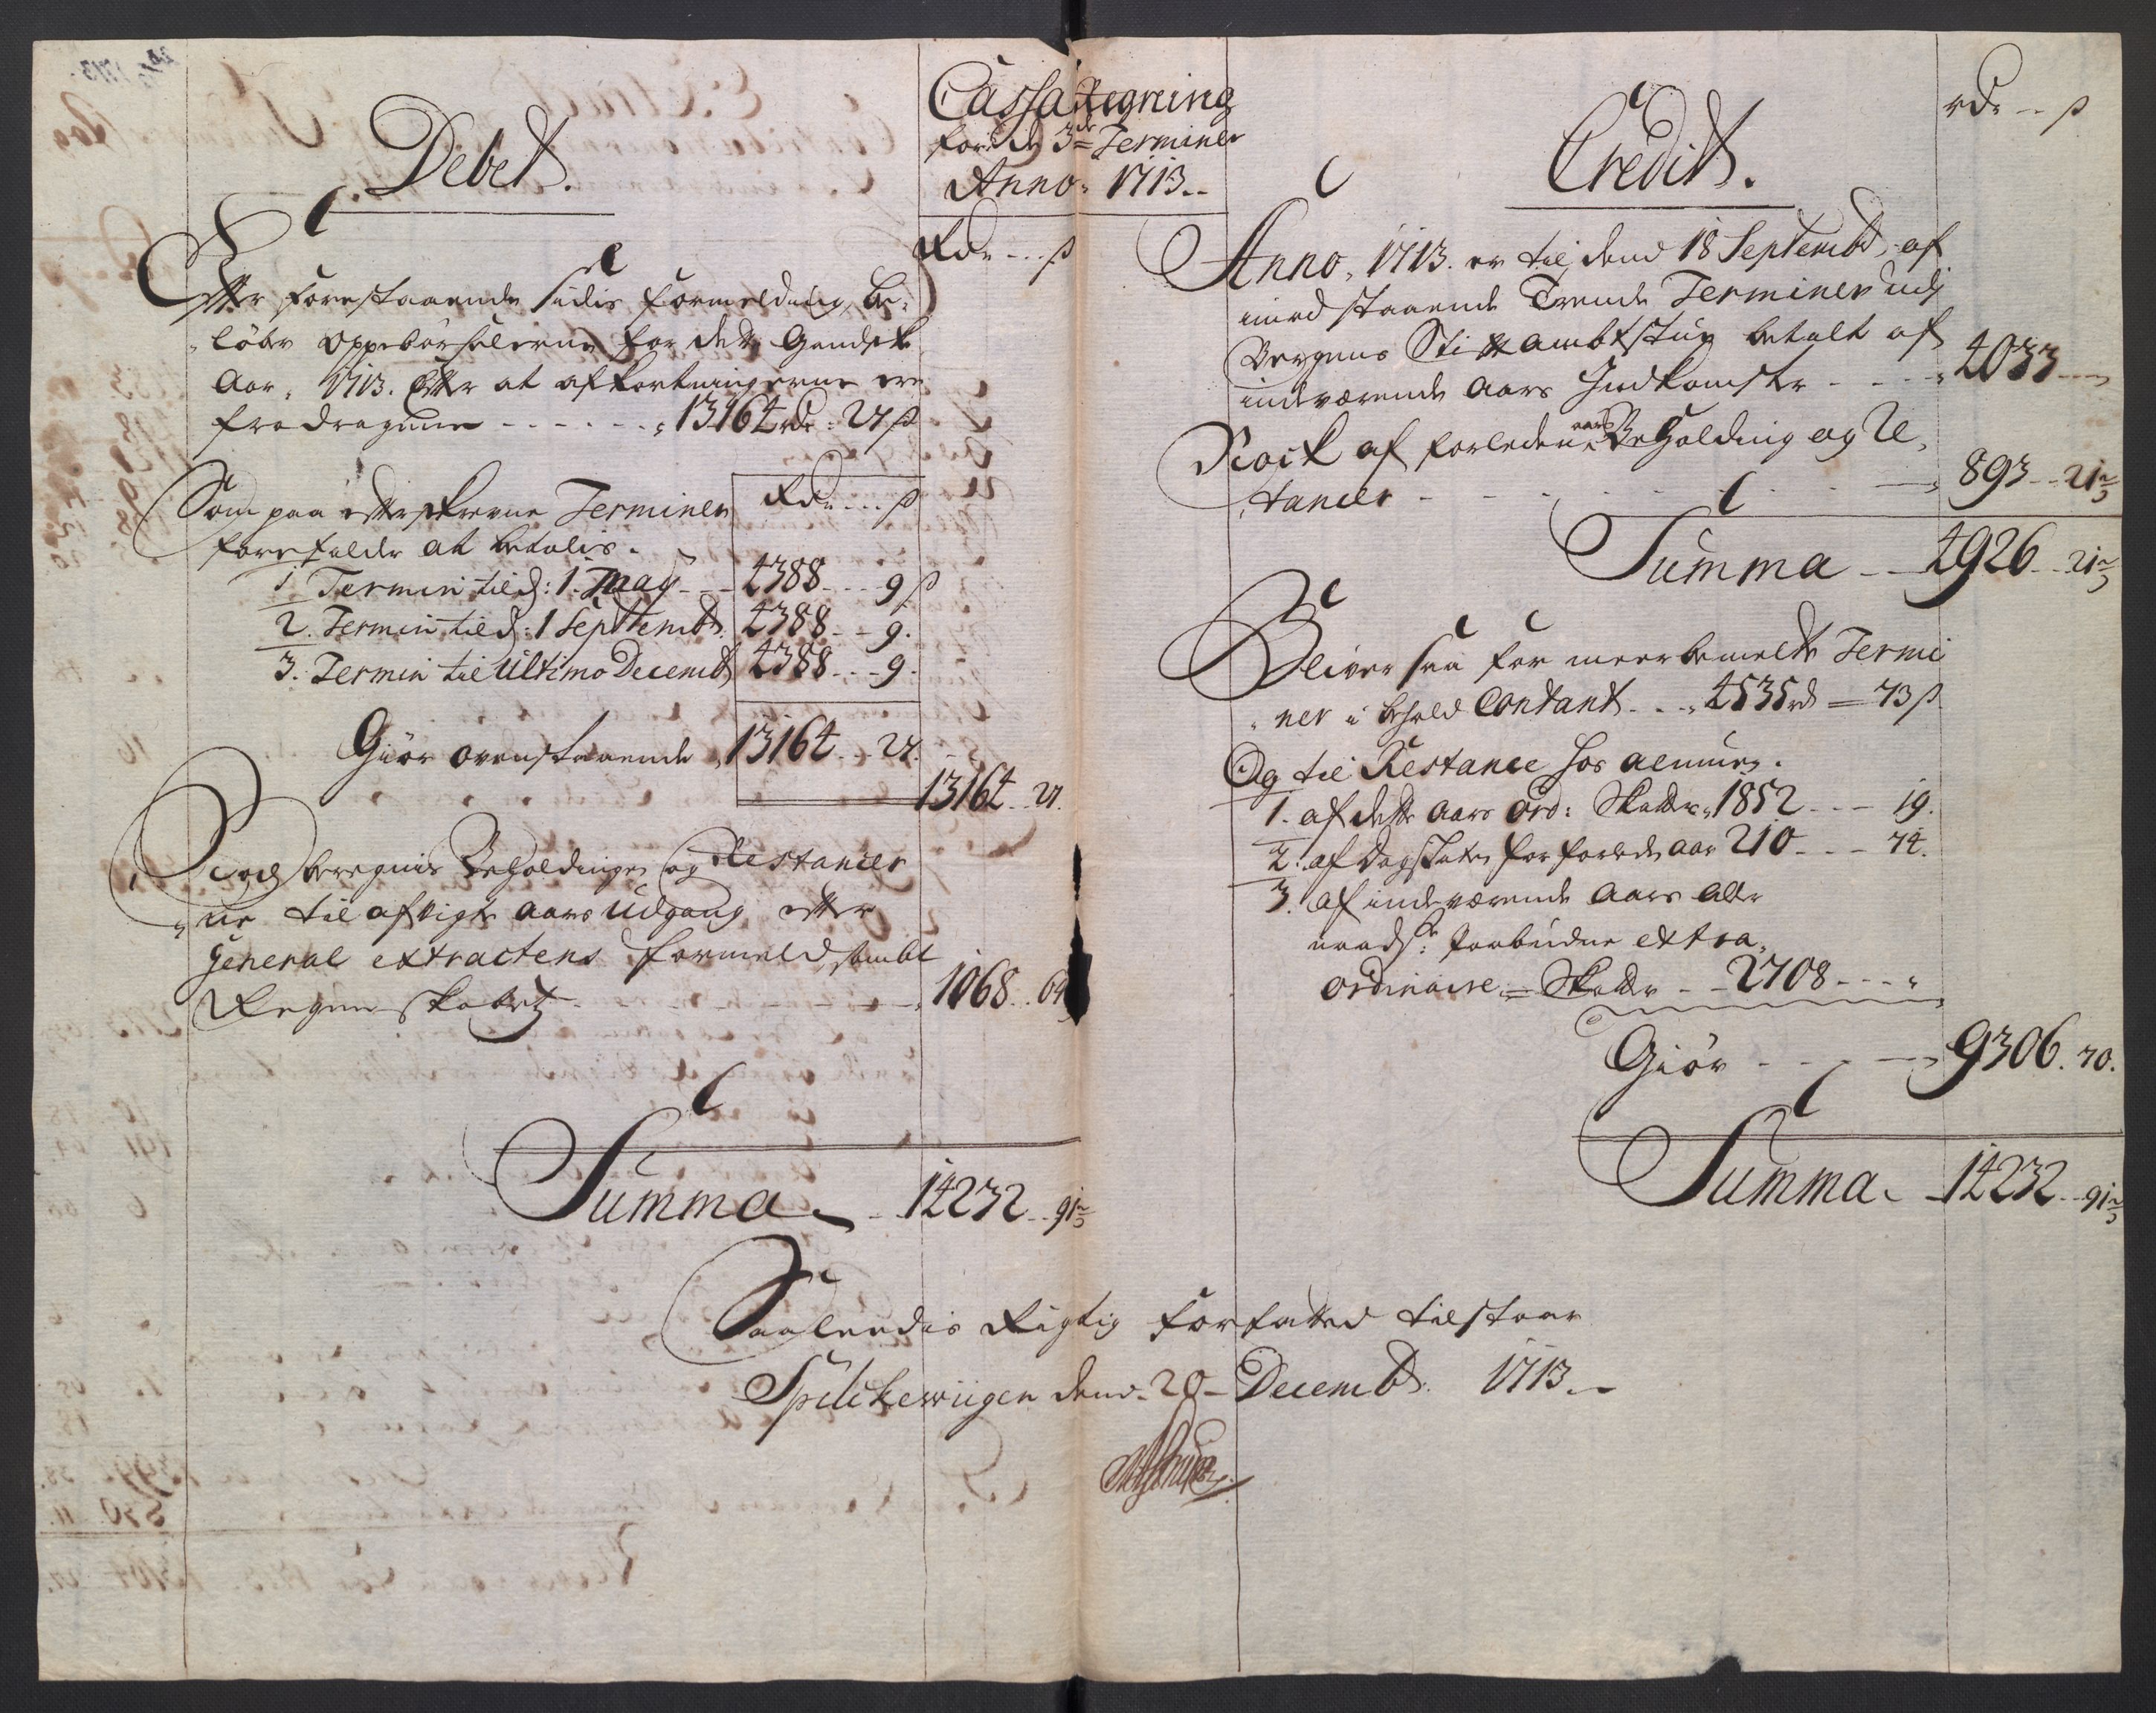 Cassa Regning
for de 3de Terminer
Anno 1713.
Debet.
Rdr ß
Efter forestaaende sidis formelding be-
löber oppebörselerne for dette Gandske
Aar, 1713. Efter at afkortningerne ere
fradragne 13164 rdr: 27 ß
Som paa efterskrevne Terminer Rdr ß
forefalder at betalis.
1. Termin til d: 1. May 4388 9 ß
2. Termin til d: 1 Septembr 4388 9.
3. Termin til Ultimo Decembr 4388 9.
Giör ovenstaaende 13164 27.
13164 27.
Noch beregnis Beholdingen og Restancer
ne til afvigte Aars Udgang efter
General extractens formeld, sambt
Regenskabet 1068 64
Summa 14232 91 2/3
Credit.
rdr ß
Anno, 1713. er til dend 18 Septembr, af
imod staaende Trende Terminer udj
Bergens Stiftambtstue betalt af
indeværende Aars Indkomster 4033
Noch af forledene aars Beholding og Re-
stancer 893 21 2/3
Summa 4926 21 2/3
Bliver saa for meerbemelte Termi
ner i behold Contant 4535 rd 73 ß
Og til Restance hos almuen.
1. af dette Aars Ord: Skatter 1852 19.
2. af dagskatten for forleden aar 210 74.
3. af indeværende Aars aller
naadst: paabudne extra
ordinaire Skatter 2708
Giör 9306. 70.
Summa 14232 91 2/3
Saaleedis Rigtig forfatted tilstaar
Spilchewiigen dend 20 Decembr. 1713.